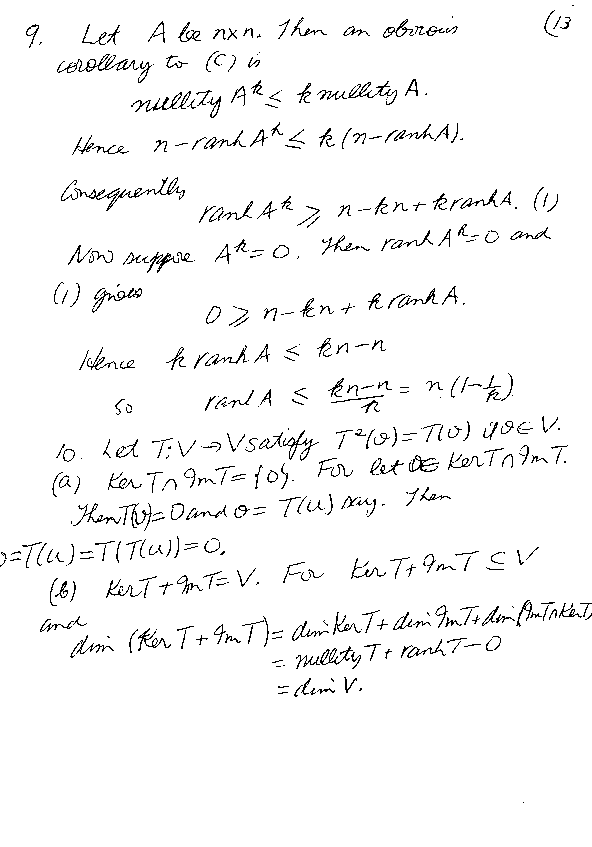 (13
9. Let A be n×n. Then an obvious
corollary to (C) is
nullity A^k ≤ k nullity A.
Hence n – rank A^k ≤ k(n – rank A).
Consequently
rank A^k ≥ n – kn + k rank A. (1)
Now suppose A^k = 0. Then rank A^k = 0 and
(1) gives
0 ≥ n – kn + k rank A.
Hence k rank A ≤ kn – n
So rank A ≤ (kn – n)/k = n(1 – 1/k)
10. Let T: V → V satisfy T²(v) = T(v) ∀ v ∈ V.
(a) Ker T ∩ Im T = {0}. For let v ∈ Ker T ∩ Im T.
Then T(v) = 0 and v = T(u) say. Then
v = T(u) = T(T(u)) = 0.
(b) Ker T + Im T = V. For Ker T + Im T ⊆ V
and
dim (Ker T + Im T) = dim Ker T + dim Im T + dim (Im T ∩ Ker T)
= nullity T + rank T – 0
= dim V.